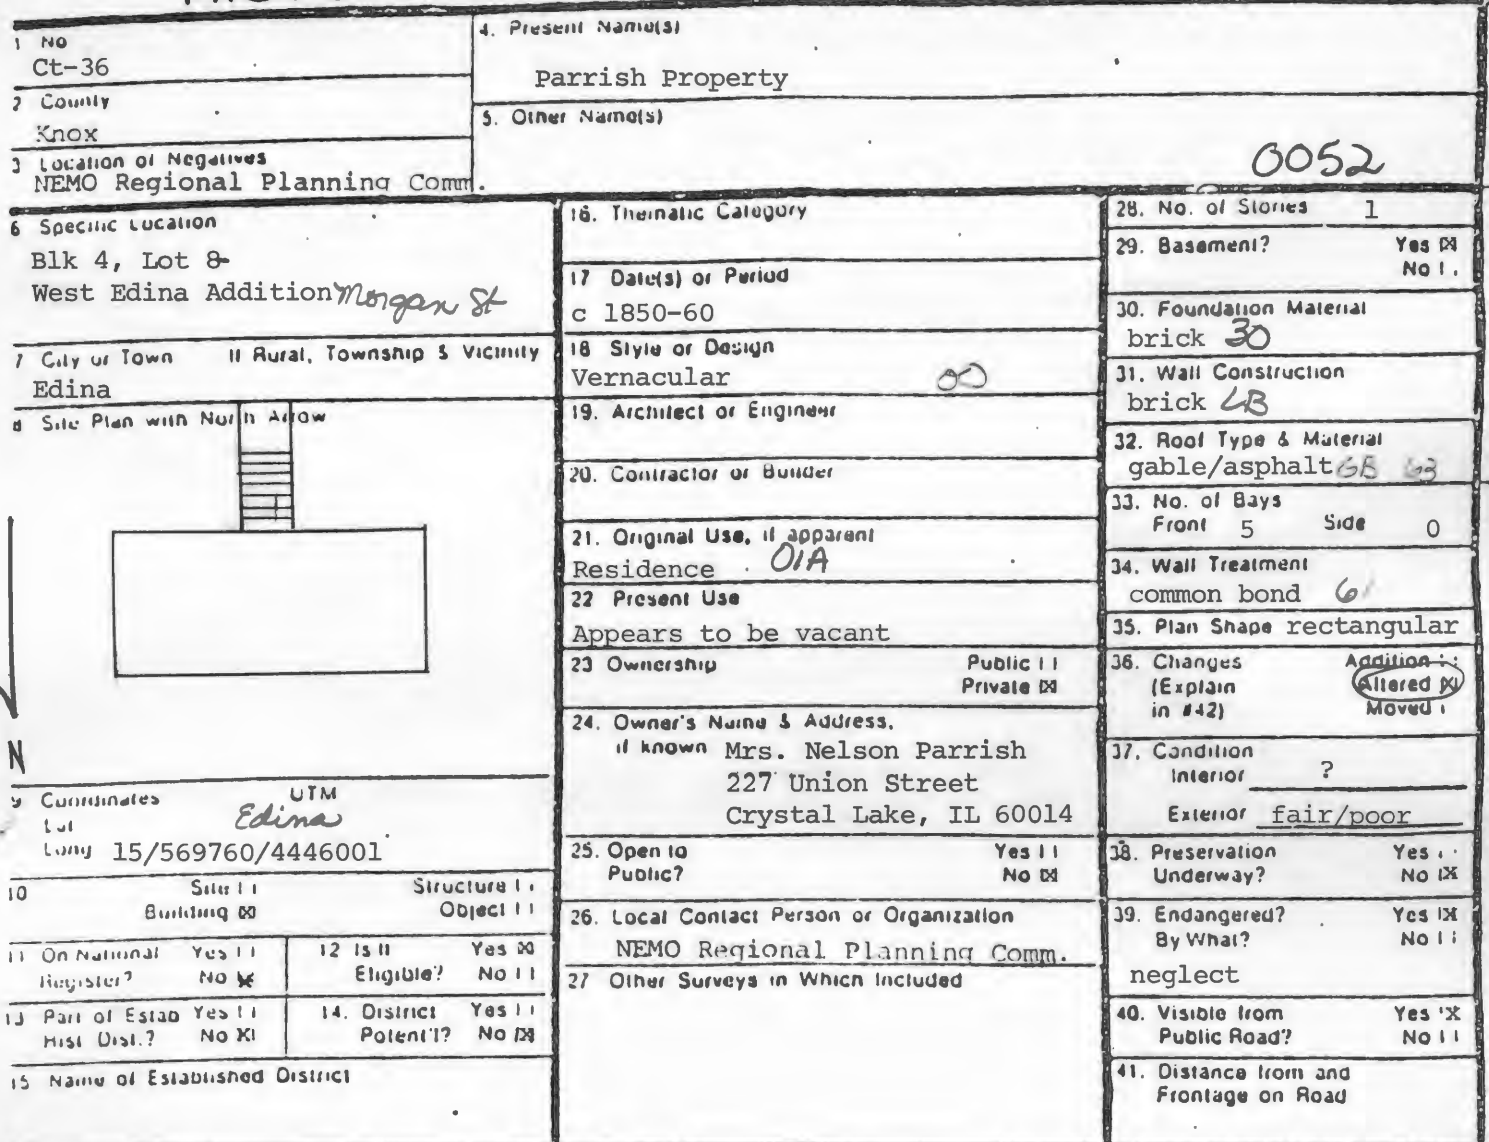 1 No
Ct-36
2 County
Knox
3 Location of Negatives
NEMO Regional Planning Comm.
4. Present Name(s)
Parrish Property
5. Other Name(s)
0052
6 Specific Location
Blk 4, Lot 8
West Edina Addition Morgan St
7 City or Town If Rural, Township & Vicinity
Edina
8 Site Plan with North Arrow
N
9 Coordinates UTM
Lat Edina
Long 15/569760/4446001
10 Site
Structure
Building
Object
11 On National Register? Yes No
12 Is It Eligible? Yes No
13 Part of Estab Hist Dist.? Yes No
14. District Potent'l? Yes No
15 Name of Established District
16. Thematic Category
17 Date(s) or Period
c 1850-60
18 Style or Design
Vernacular 00
19. Architect or Engineer
20. Contractor or Builder
21. Original Use, if apparent
Residence 01A
22 Present Use
Appears to be vacant
23 Ownership Public
Private
24. Owner's Name & Address,
if known Mrs. Nelson Parrish
227 Union Street
Crystal Lake, IL 60014
25. Open to Yes
Public? No
26. Local Contact Person or Organization
NEMO Regional Planning Comm.
27 Other Surveys in Which Included
28. No. of Stories 1
29. Basement? Yes
No
30. Foundation Material
brick 30
31. Wall Construction
brick LB
32. Roof Type & Material
gable/asphalt GB 63
33. No. of Bays
Front 5 Side 0
34. Wall Treatment
common bond
35. Plan Shape rectangular
36. Changes Addition
(Explain Altered
in #42) Moved
37. Condition
Interior ?
Exterior fair/poor
38. Preservation Yes
Underway? No
39. Endangered? Yes
By What? No
neglect
40. Visible from Yes
Public Road? No
41. Distance from and
Frontage on Road